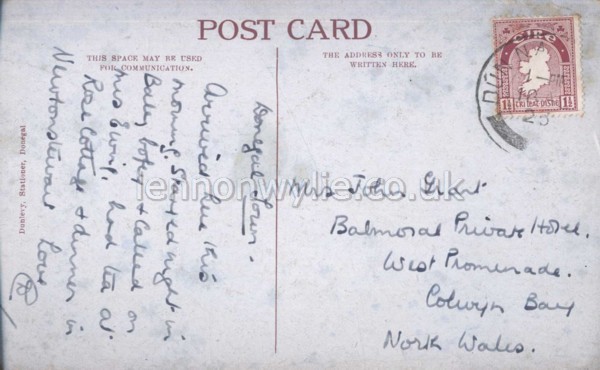 POST CARD
THIS SPACE MAY BE USED
FOR COMMUNICATION.
THE ADDRESS ONLY TO BE
WRITTEN HERE.
Donegal Town.
Arrived here this
morning. Stayed night in
Bally & called on
Mrs Ewing, had tea at
Rose Cottage & dinner in
Newtonstewart Love
Dunlevy, Stationer, Donegal
Mrs John Grant
Balmoral Private Hotel.
West Promenade.
Colwyn Bay
North Wales.
éire
1½ 1½
DÚN NA
23
lennonwylie.co.uk